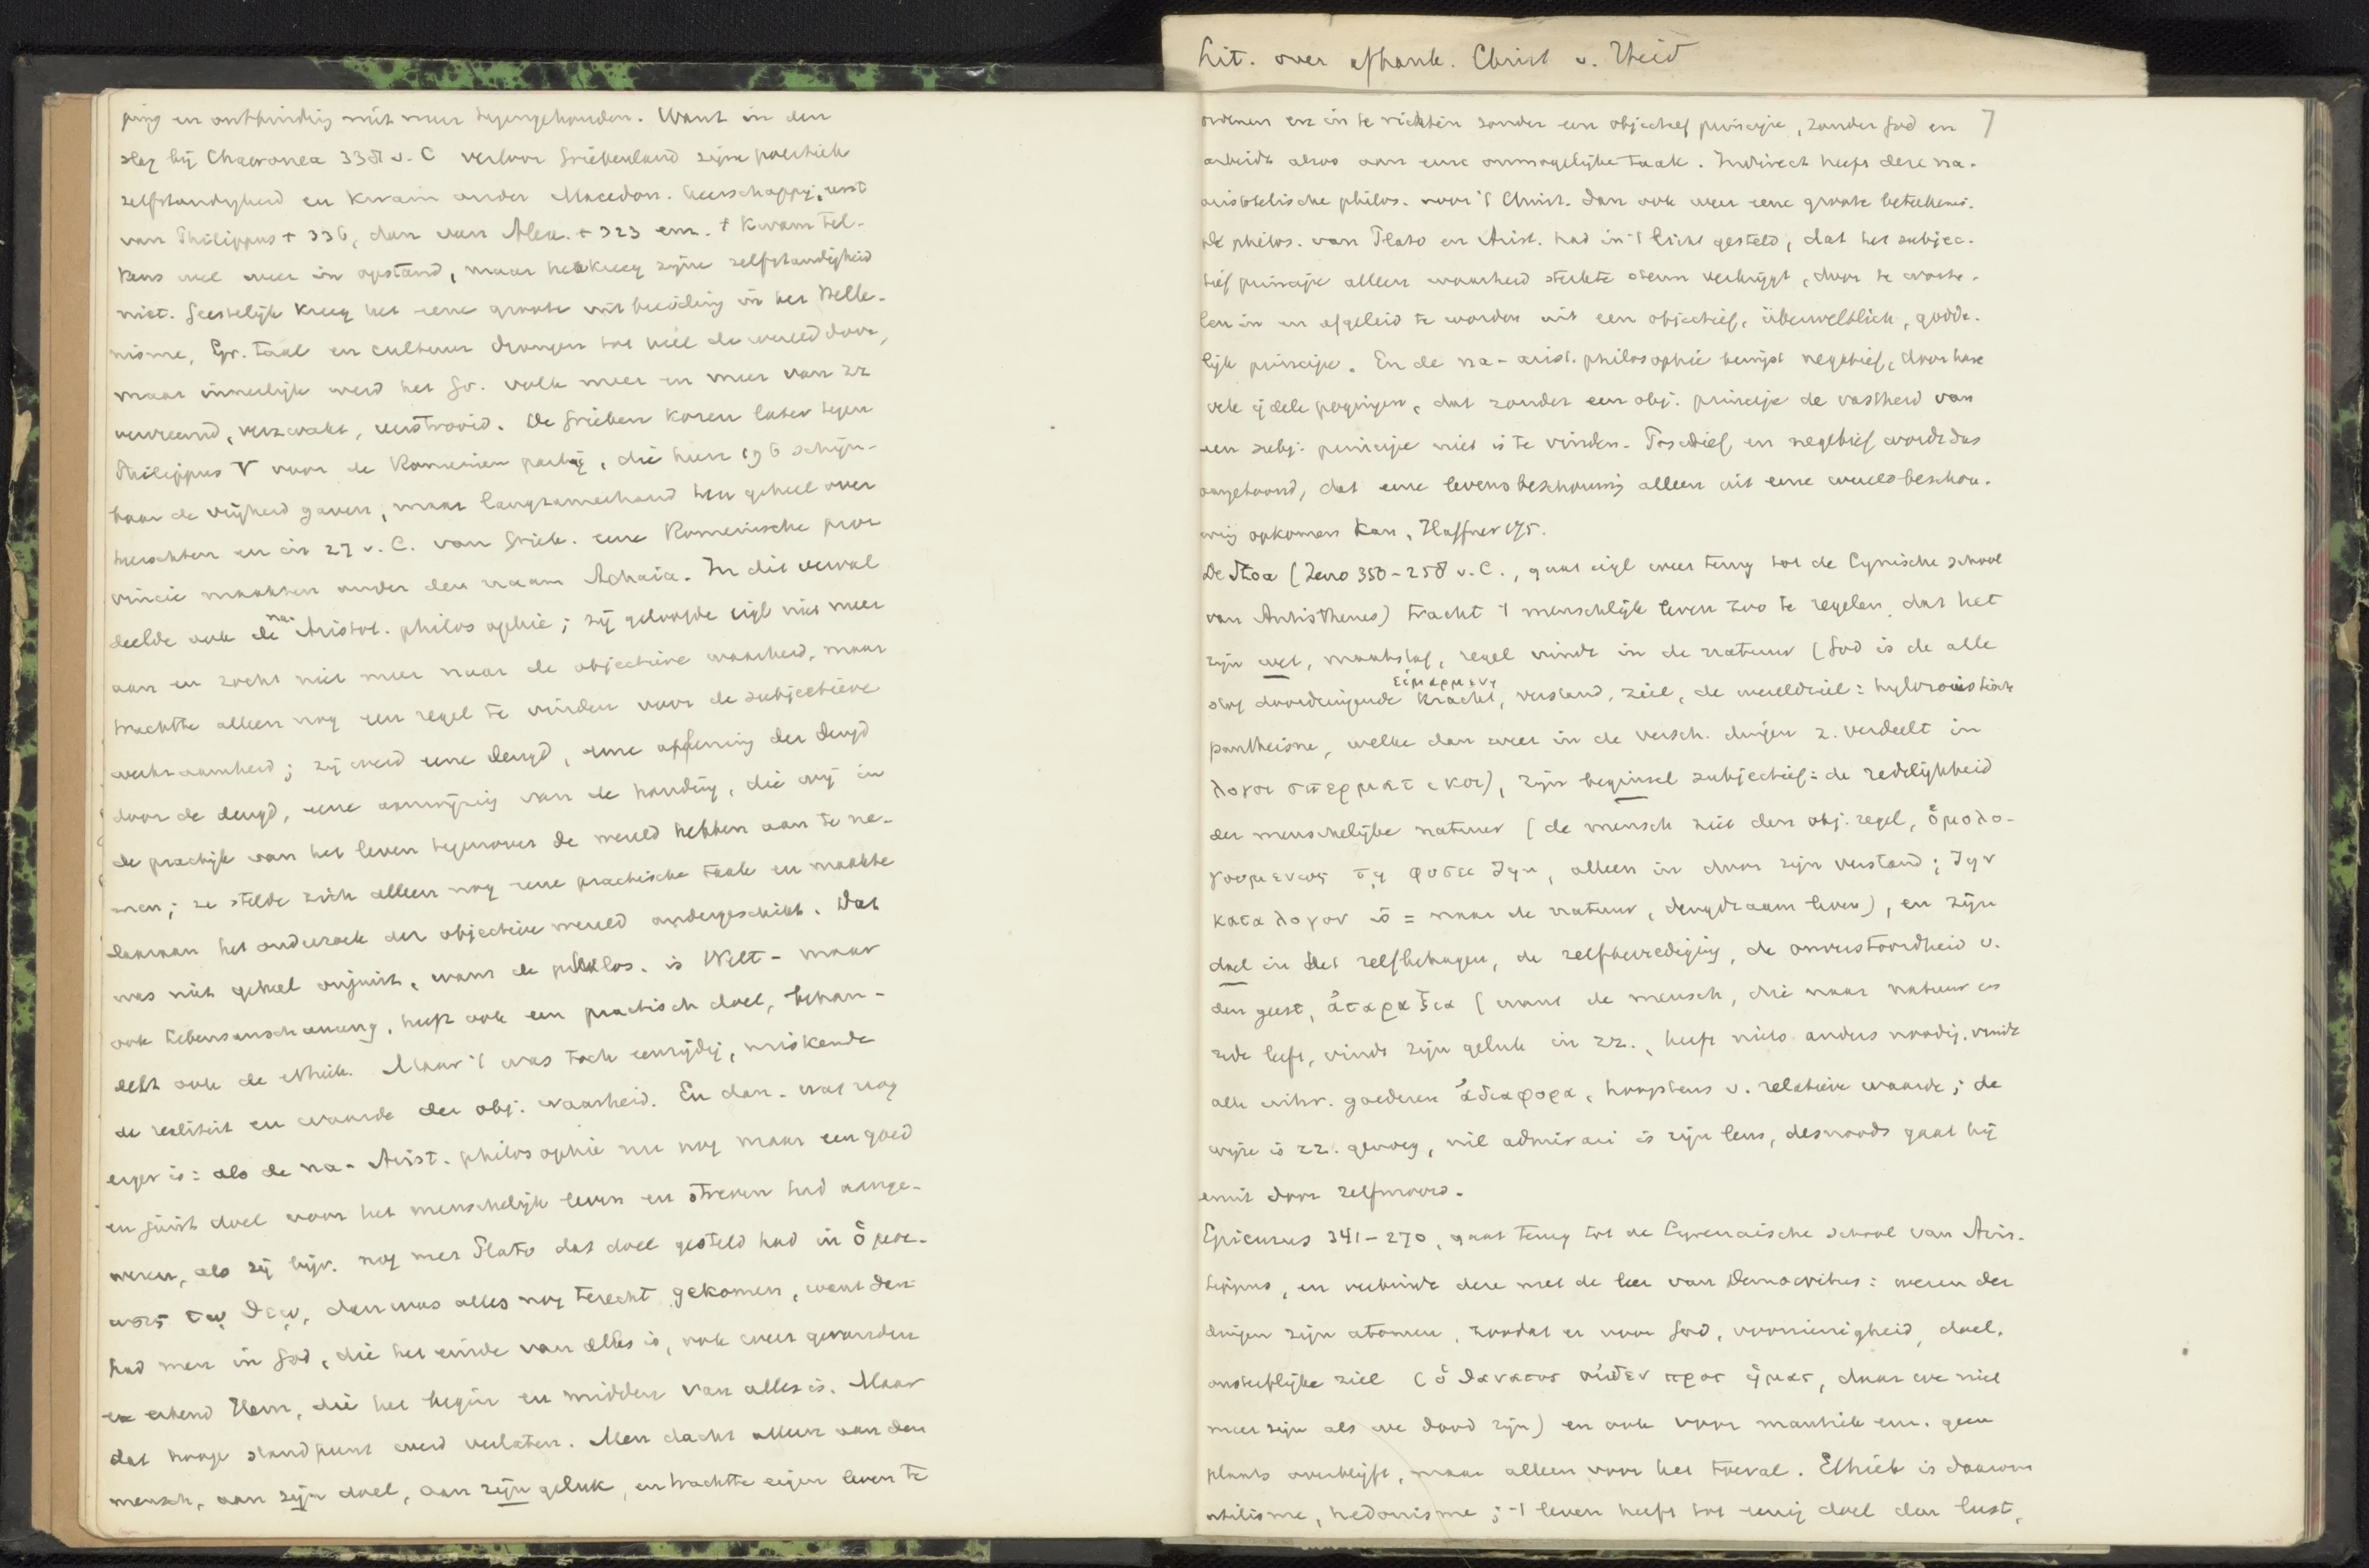 Lit. over afhank. Christ v. Heid
ping en ontbinding niet meer tegengehouden. Want in den
slag bij Chaeronea 338 v. C verloor Griekenland zijne politiek
zelfstandigheid en kwam onder Macedon. heerschappij, eerst
van Philippus + 336, dan van Alex. + 323 enz. 't Kwam tel-
kens wel weer in opstand, maar het kreeg zijne zelfstandigheid
niet. Geestelijk kreeg het eene groote uitbreiding in het Helle-
nisme, Gr. taal en cultuur drongen tot heel de wereld door,
maar innerlijk werd het Gr. volk meer en meer van zz
vervreemd, verzwakt, verstrooid. De Grieken kozen later tegen
Philippus V voor de Romeinen partij, die hun 196 schijn-
baar de vrijheid gaven, maar langzamerhand hen geheel over
heerschten en in 27 v. C. van Griek. eene Romeinsche pro-
vincie maakten onder den naam Achaia. In dit verval
deelde ook de na- Aristot. philosophie; zij geloofde eigl niet meer
aan en zocht niet meer naar de objectieve waarheid, maar
trachtte alleen nog een regel te vinden voor de subjectieve
werkzaamheid; zij werd eene deugd, eene oefening der deugd
door de deugd, eene aanwijzing van de houding, die wij in
de practijk van het leven tegenover de wereld hebben aan te ne-
men; ze stelde zich alleen nog eene practische taak en maakte
daaraan het onderzoek der objectieve wereld ondergeschikt. Dat
was niet geheel onjuist, want de philos. is Welt- maar
ook Lebensanschauung, heeft ook een practisch doel, behan-
delt ook de ethiek. Maar 't was toch eenzijdig, miskende
de realiteit en waarde der obj. waarheid. En dan. wat nog
erger is: als de na-Arist. philosophie nu nog maar een goed
en juist doel voor het menschelijk leven en streven had aange-
wezen, als zij bijv. nog met Plato dat doel gesteld had in ὁμοι-
ωσις τῳ θεῳ, dan was alles nog terecht gekomen, want dan
had men in God, die het einde van alles is, ook weer gevonden
en erkend Hem, die het begin en midden van alles is. Maar
dat hooge standpunt werd verlaten. Men dacht alleen aan den
mensch, aan zijn doel, aan zijn geluk, en trachtte eigen leven te
7
ordenen en in te richten zonder een objectief principe, zonder God en
arbeidt alzoo aan eene onmogelijke taak. Indirect heeft deze na-
aristotelische philos. voor 't Christ. dan ook weer eene groote beteekenis.
De philos. van Plato en Arist. had in 't licht gesteld, dat het subjec-
tief principe alleen waarheid sterkte steun verkrijgt, door te worte-
len in en afgeleid te worden uit een objectief, überweltlich, godde-
lijk principe. En de na-arist. philosophie bewijst negatief, door hare
vele ijdele pogingen, dat zonder een obj. principe de vastheid van
een subj. principe niet is te vinden. Positief en negatief wordt dus
aangetoond, dat eene levensbeschouwing alleen uit eene wereldbeschou-
wing opkomen kan, Haffner 175.
De Stoa (Zeno 350-258 v. C., gaat eigl weer terug tot de Cynische school
van Antisthenes) tracht 't menschelijk leven zoo te regelen, dat het
zijn wet, maatstaf, regel vindt in de natuur (God is de alle
εἱμαρμενη
stof doordringende kracht, verstand, ziel, de wereldziel: hylozoistisch
pantheisme, welke dan weer in de versch. dingen z. verdeelt in
λογοι σπερματικοι), zijn beginsel subjectief: de redelijkheid
der menschelijke natuur (de mensch ziet den obj. regel, ὁμολο-
γουμενως τῃ φυσει ζην, alleen in door zijn verstand; ζην
κατα λογον is = naar de natuur, deugdzaam leven), en zijn
doel in het zelfbehagen, de zelfbevrediging, de onverstoordheid v.
den geest, ἀταραξια (want de mensch, die naar natuur en
rede leeft, vindt zijn geluk in zz., heeft niets anders noodig, vindt
alle uitw. goederen ἀδιαφορα, hoogstens v. relatieve waarde; de
wijze is zz. genoeg, nil admirari is zijn leus, desnoods gaat hij
eruit door zelfmoord.
Epicurus 341-270, gaat terug tot de Cyrenaische school van Aris-
tippus, en verbindt deze met de leer van Democritus: wezen der
dingen zijn atomen, zoodat er voor God, voorzienigheid, doel,
onsterflijke ziel (ὁ θανατος οὐδεν προς ἡμας, daar we niet
meer zijn als we dood zijn) en ook voor mantiek enz. geen
plaats overblijft, maar alleen voor het toeval. Ethiek is daarom
utilisme, hedonisme; 't leven heeft tot eenig doel den lust,